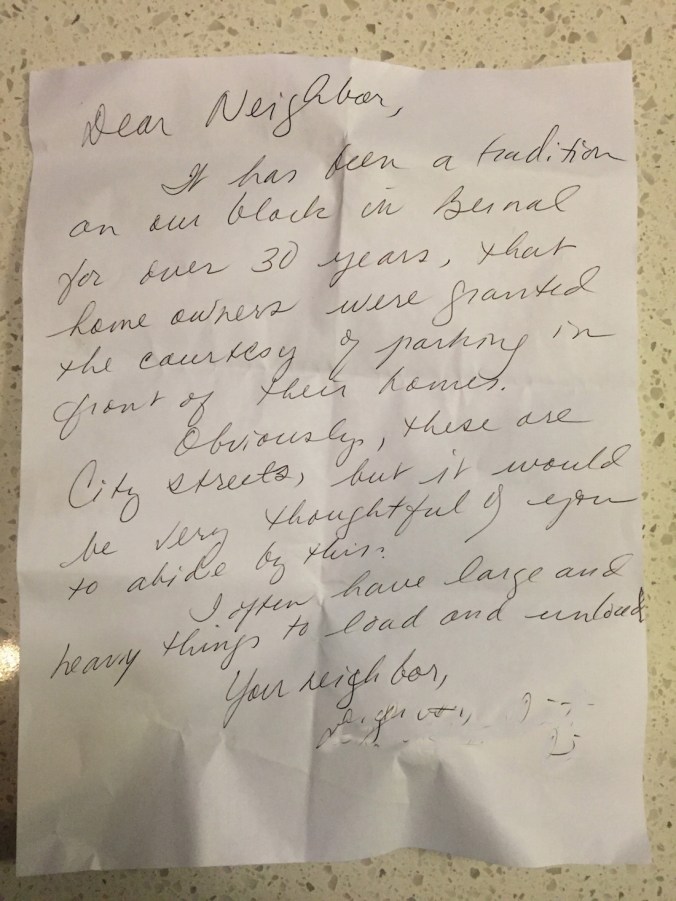 Dear Neighbor,
It has been a tradition
on our block in Bernal
for over 30 years, that
home owners were granted
the courtesy of parking in
front of their homes.
Obviously, these are
City streets, but it would
be very thoughtful of you
to abide by this.
I often have large and
heavy things to load and unload
Your neighbor,